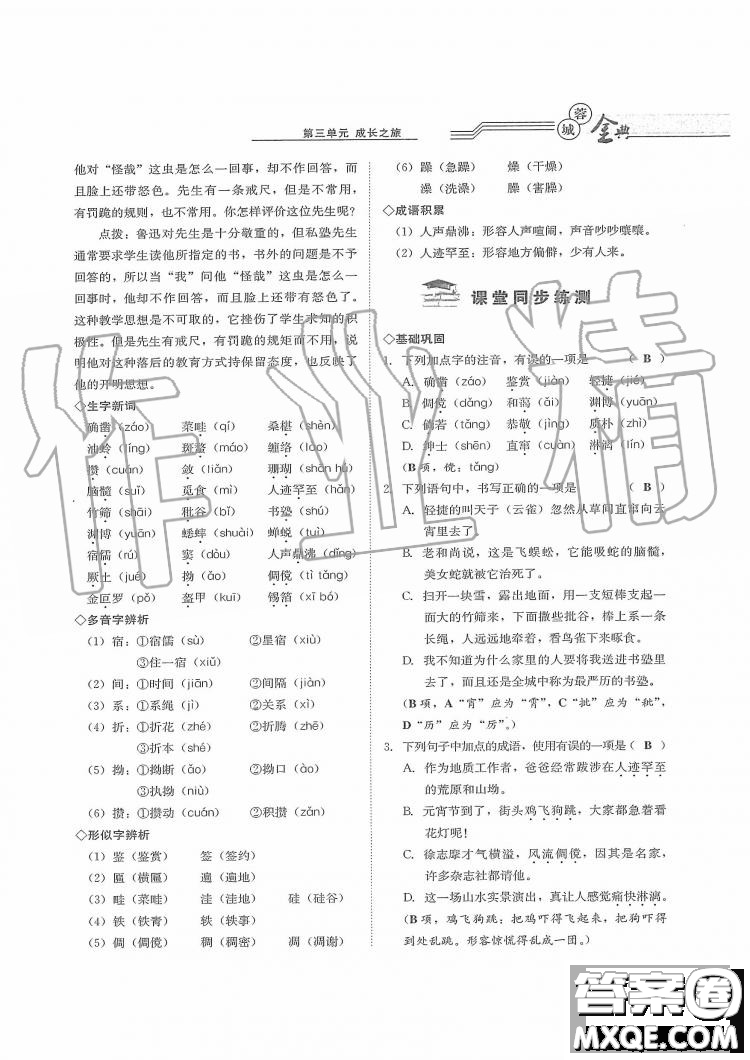 第三单元 成长之旅
蓉城金典
他对“怪哉”这虫是怎么一回事，却不作回答，而
且脸上还带怒色。先生有一条戒尺，但是不常用，
有罚跪的规则，也不常用。你怎样评价这位先生呢？
点拨：鲁迅对先生是十分敬重的，但私塾先生
通常要求学生读他所指定的书，书外的问题是不予
回答的，所以当“我”问他“怪哉”这虫是怎么一
回事时，他却不作回答，而且脸上还带怒色了。
这种教学思想是不可取的，它挫伤了学生求知的积
极性。但是先生有戒尺，有罚跪的规矩而不用，说
明他对这种落后的教育方式持保留态度，也反映了
他的开明思想。
◇生字新词
确凿（záo） 菜畦（qí） 桑椹（shèn）
油蛉（líng） 斑蝥（máo） 缠络（luò）
攒（cuán） 敛（liǎn） 珊瑚（shān hú）
脑髓（suǐ） 觅食（mì） 人迹罕至（hǎn）
竹筛（shāi） 秕谷（bǐ） 书塾（shú）
渊博（yuān） 蟋蟀（shuài） 蝉蜕（tuì）
宿儒（rú） 窦（dòu） 人声鼎沸（dǐng）
厥土（jué） 拗（ǎo） 倜傥（tì tǎng）
金叵罗（pǒ） 盔甲（kuī） 锡箔（xī bó）
◇多音字辨析
（1）宿：①宿儒（sù） ②星宿（xiù）
③住一宿（xiǔ）
（2）间：①时间（jiān） ②间隔（jiàn）
（3）系：①系绳（jì） ②关系（xì）
（4）折：①折花（zhé） ②折腾（zhē）
③折本（shé）
（5）拗：①拗断（ǎo） ②拗口（ào）
③执拗（niù）
（6）攒：①攒动（cuán） ②积攒（zǎn）
◇形似字辨析
（1）鉴（鉴赏） 签（签约）
（2）匾（横匾） 遍（遍地）
（3）畦（菜畦） 洼（洼地） 硅（硅谷）
（4）铁（铁青） 轶（轶事）
（5）倜（倜傥） 稠（稠密） 凋（凋谢）
（6）躁（急躁） 燥（干燥）
澡（洗澡） 臊（害臊）
◇成语积累
（1）人声鼎沸：形容人声喧闹，声音吵吵嚷嚷。
（2）人迹罕至：形容地方偏僻，少有人来。
课堂同步练测
◇基础巩固
1. 下列加点字的注音，有误的一项是 （ B ）
A. 确凿（záo） 鉴赏（jiàn） 轻捷（jié）
B. 倜傥（dǎng） 和蔼（ǎi） 渊博（yuān）
C. 倘若（tǎng） 恭敬（gōng） 质朴（zhì）
D. 绅士（shēn） 直窜（cuàn） 淋漓（lí）
（B项，傥：tǎng）
2. 下列语句中，书写正确的一项是 （ B ）
A. 轻捷的叫天子（云雀）忽然从草间直窜向云
宵里去了。
B. 老和尚说，这是飞蜈蚣，它能吸蛇的脑髓，
美女蛇就被它治死了。
C. 扫开一块雪，露出地面，用一支短棒支起一
面大的竹筛来，下面撒些批谷，棒上系一条
长绳，人远远地牵着，看鸟雀下来啄食。
D. 我不知道为什么家里的人要将我送进书塾里
去了，而且还是全城中称为最严历的书塾。
（B项，A“宵”应为“霄”，C“批”应为“秕”，
D“历”应为“厉”。）
3. 下列句子中加点的成语，使用有误的一项是（ B ）
A. 作为地质工作者，爸爸经常跋涉在人迹罕至
的荒原和山坳。
B. 元宵节到了，街头鸡飞狗跳，大家都赶着看
花灯呢！
C. 徐志摩才气横溢，风流倜傥，因其是名家，
许多杂志社都请他。
D. 这一场山水实景演出，真让人感觉痛快淋漓。
（B项，鸡飞狗跳：把鸡吓得飞起来，把狗吓得
到处乱跳。形容惊慌得乱成一团。）
作业精
答案圈
MXQE.COM